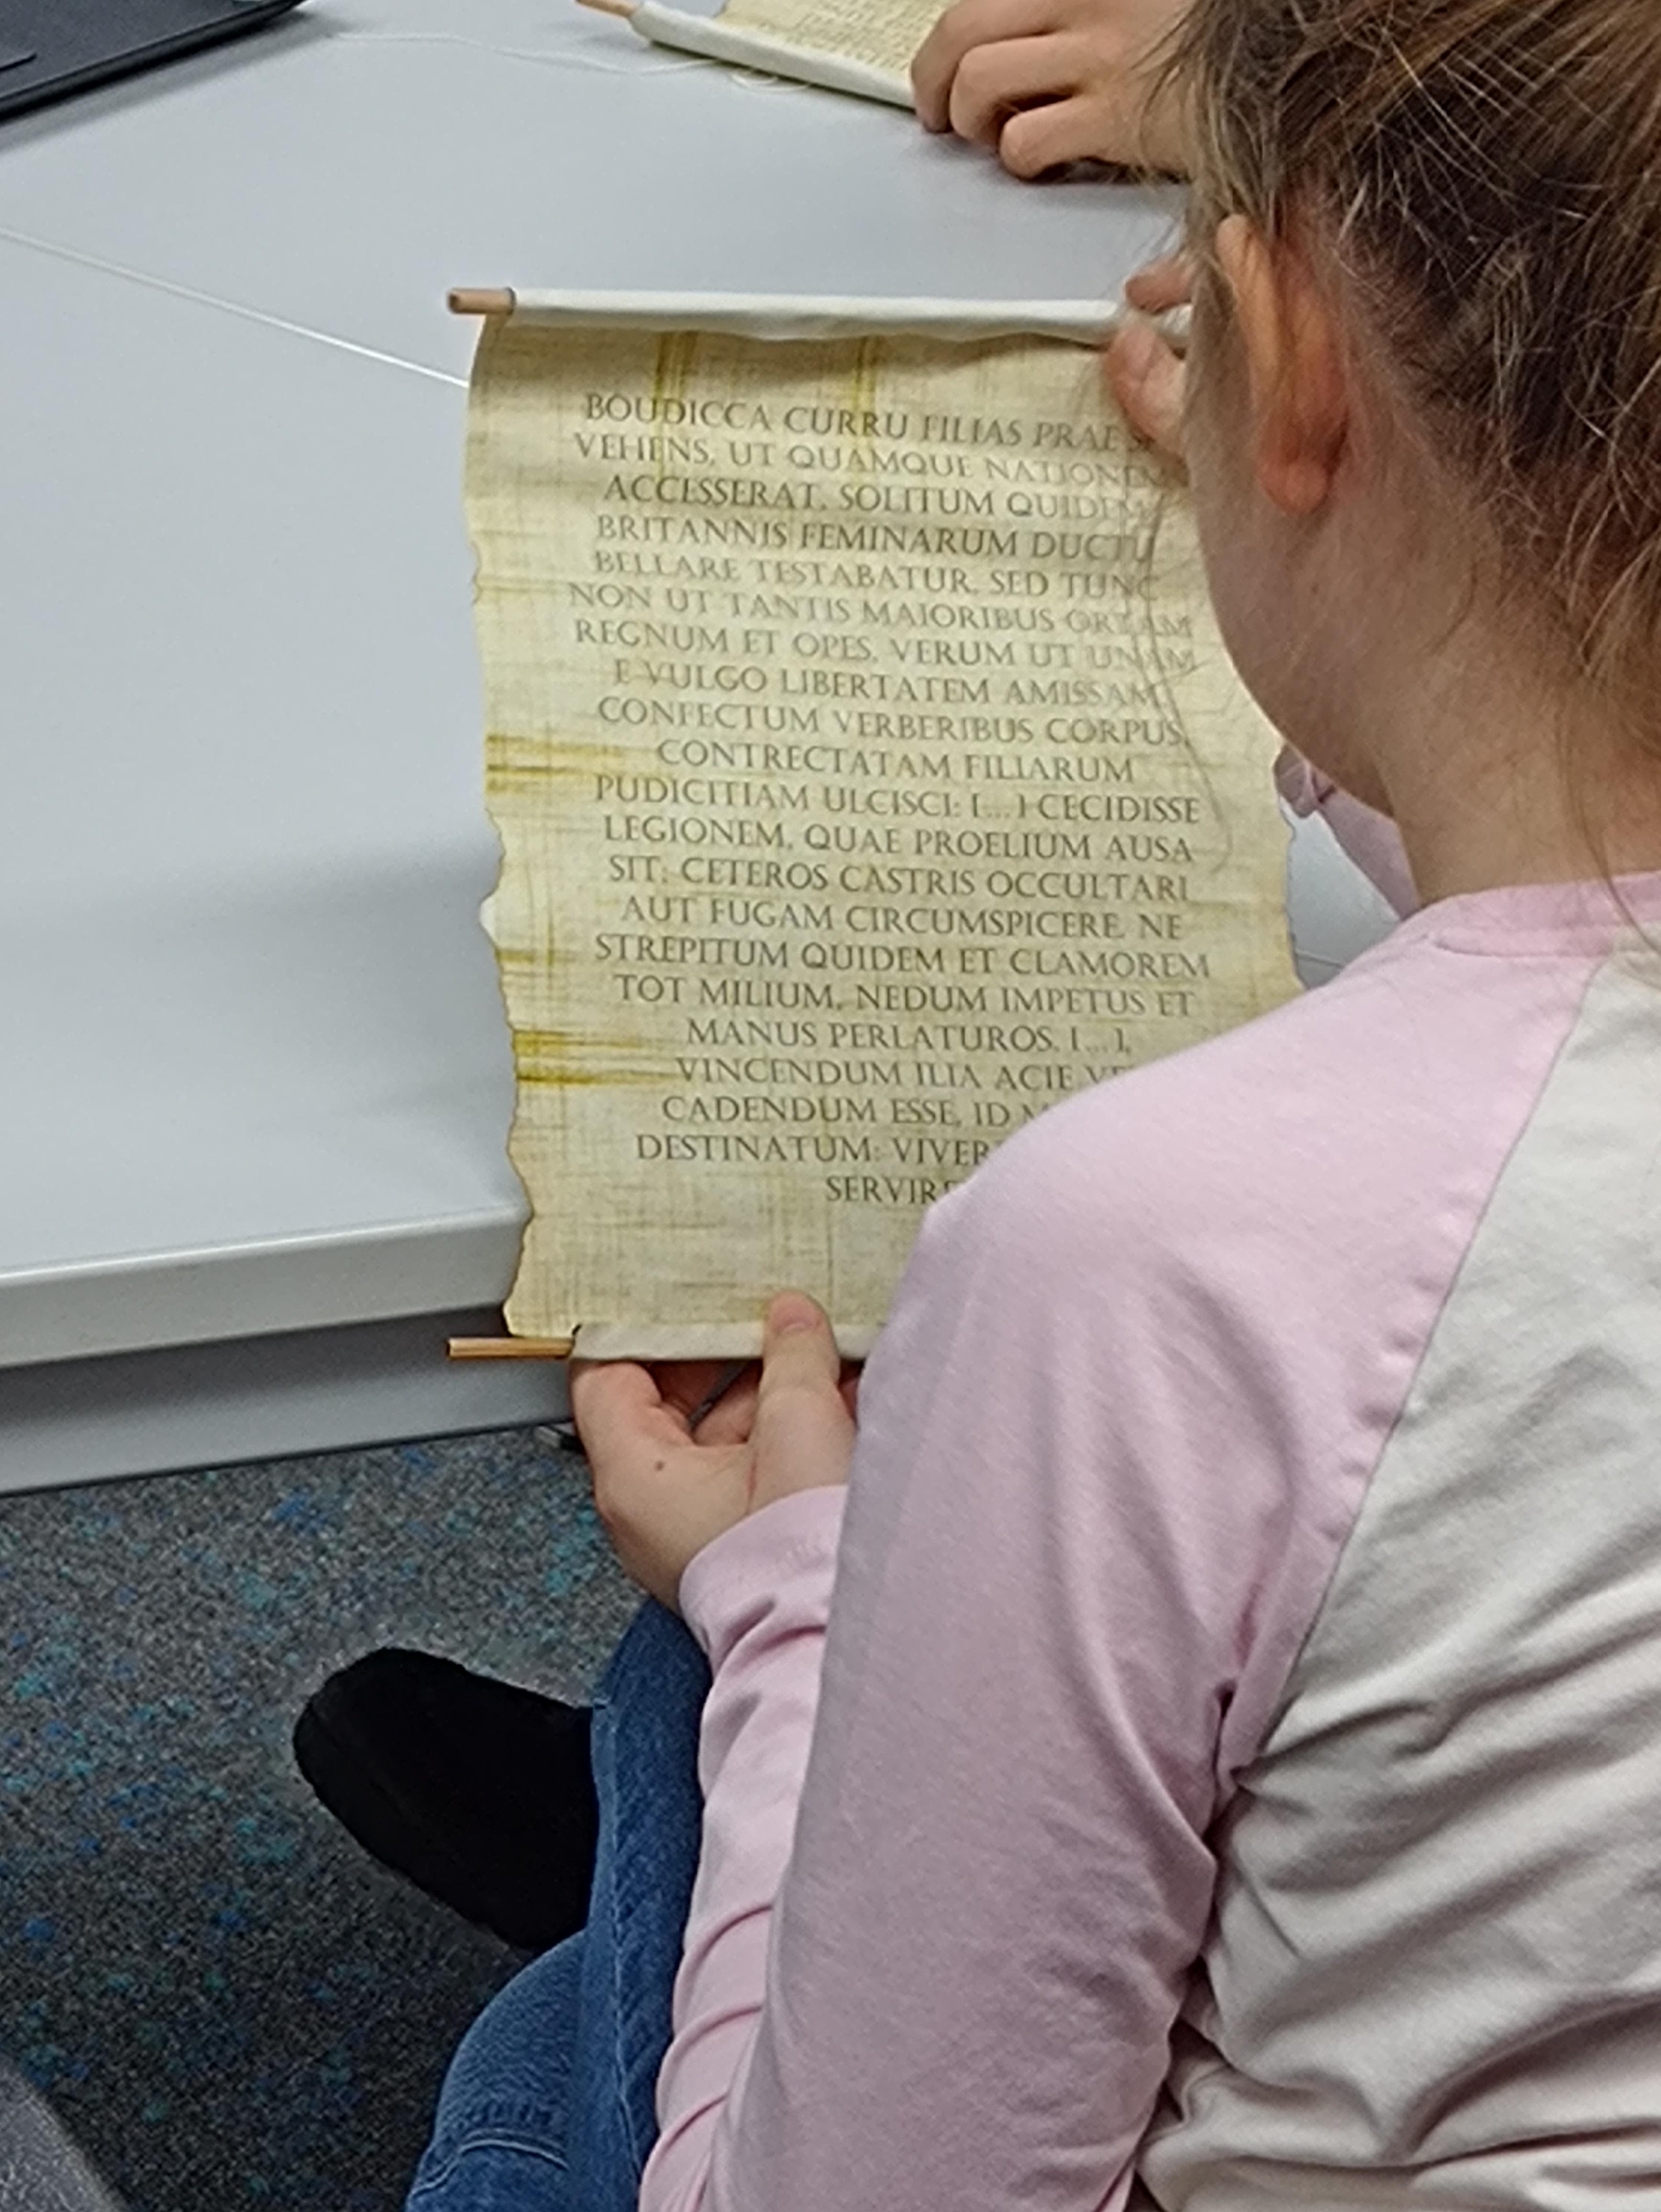 BOUDICCA CURRU FILIAS PRAE
VEHENS, UT QUAMQUE NATIONEM
ACCESSERAT, SOLITUM QUIDEM
BRITANNIS FEMINARUM DUCTU
BELLARE TESTABATUR, SED TUNC
NON UT TANTIS MAIORIBUS ORTAM
REGNUM ET OPES, VERUM UT UNAM
E VULGO LIBERTATEM AMISSAM,
CONFECTUM VERBERIBUS CORPUS,
CONTRECTATAM FILIARUM
PUDICITIAM ULCISCI; [...] CECIDISSE
LEGIONEM, QUAE PROELIUM AUSA
SIT; CETEROS CASTRIS OCCULTARI
AUT FUGAM CIRCUMSPICERE. NE
STREPITUM QUIDEM ET CLAMOREM
TOT MILIUM, NEDUM IMPETUS ET
MANUS PERLATUROS. [...],
VINCENDUM ILIA ACIE
CADENDUM ESSE, ID
DESTINATUM: